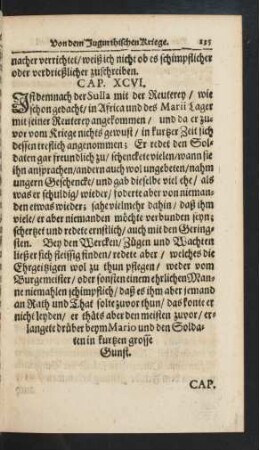 Von dem Jugurthischen Kriege. 135
nacher verrichtet / weiß ich nicht ob es schimpflicher
oder verdrießlicher zuschreiben.
CAP. XCVI.
Ist demnach der Sulla mit der Reuterey / wie
schon gedacht / in Africa und des Marii Lager
mit seiner Reuterey angekommen / und da er zu-
vor vom Kriege nichts gewust / in kurtzer Zeit sich
dessen treflich angenommen; Er redet den Sol-
daten gar freundlich zu / schenckete vielen / wann sie
ihn ansprachen / andern auch wol ungebeten / nahm
ungern Geschencke / und gab dieselbe viel ehe / als
was er schuldig / wieder / foderte aber von nieman-
den etwas wieder; sahe vielmehr dahin / daß ihm
viele / er aber niemanden möchte verbunden seyn;
schertzet und redete ernstlich / auch mit den Gering-
sten. Bey den Wercken / Zügen und Wachten
ließ er sich fleissig finden / redete aber / welches die
Ehrgeitzigen wol zu thun pflegen / weder vom
Burgemeister / oder sonsten einem ehrlichen Man-
ne niemahlen schimpflich / daß es ihm aber jemand
an Rath und That solte zuvor thun / das konte er
nicht leyden / er thäts aber den meisten zuvor / er-
langete drüber beym Mario und den Solda-
ten in kurtzen grosse
Gunst.
CAP.